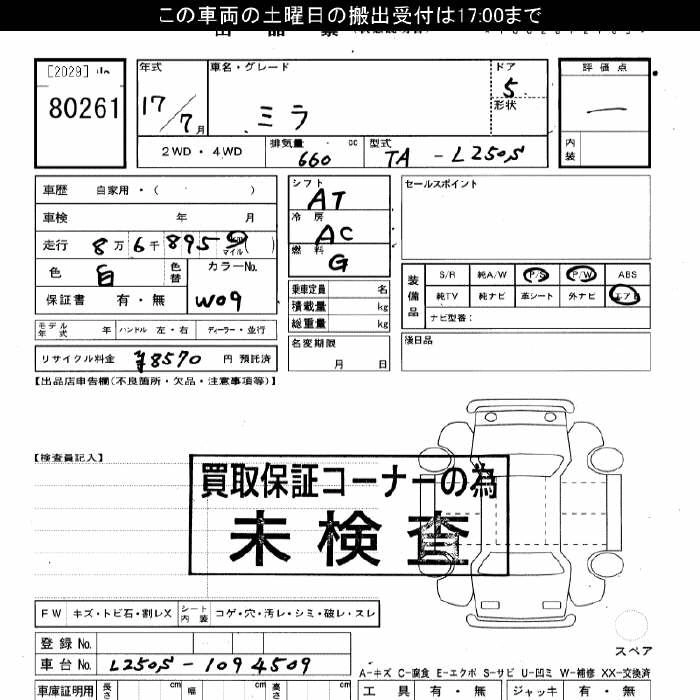 この車両の土曜日の搬出受付は17:00まで
出 品 票
[2029]
80261
年式
17/7月
車名・グレード
ミラ
ドア
5
形状
評価点
—
内装
2WD・4WD
排気量 660 cc
型式 TA - L250S
車歴 自家用・( )
車検 年 月
走行 8万6千895 km マイル ( )
色 白 色替
カラーNo. W09
保証書 有・無
モデル年式 年 ハンドル 左・右 ディーラー・並行
リサイクル料金 ¥8570 円 預託済
シフト AT
冷房 AC
燃料 G
乗車定員 名
積載量 kg
総重量 kg
名変期限 月 日
セールスポイント
装備品
S/R 純A/W P/S P/W ABS
純TV 純ナビ 革シート 外ナビ エアB
ナビ型番:
後日品
【出品店申告欄(不良箇所・欠品・注意事項等)】
【検査員記入】
買取保証コーナーの為
未検査
FW キズ・トビ石・割レX シート内装 コゲ・穴・汚レ・シミ・破レ・スレ
登録No.
車台No. L250S-1094509
スペア
A-キズ C-腐食 E-エクボ S-サビ U-凹ミ W-補修 XX-交換済
車庫証明用 長さ cm 幅 cm 高さ cm
工具 有・無 ジャッキ 有・無